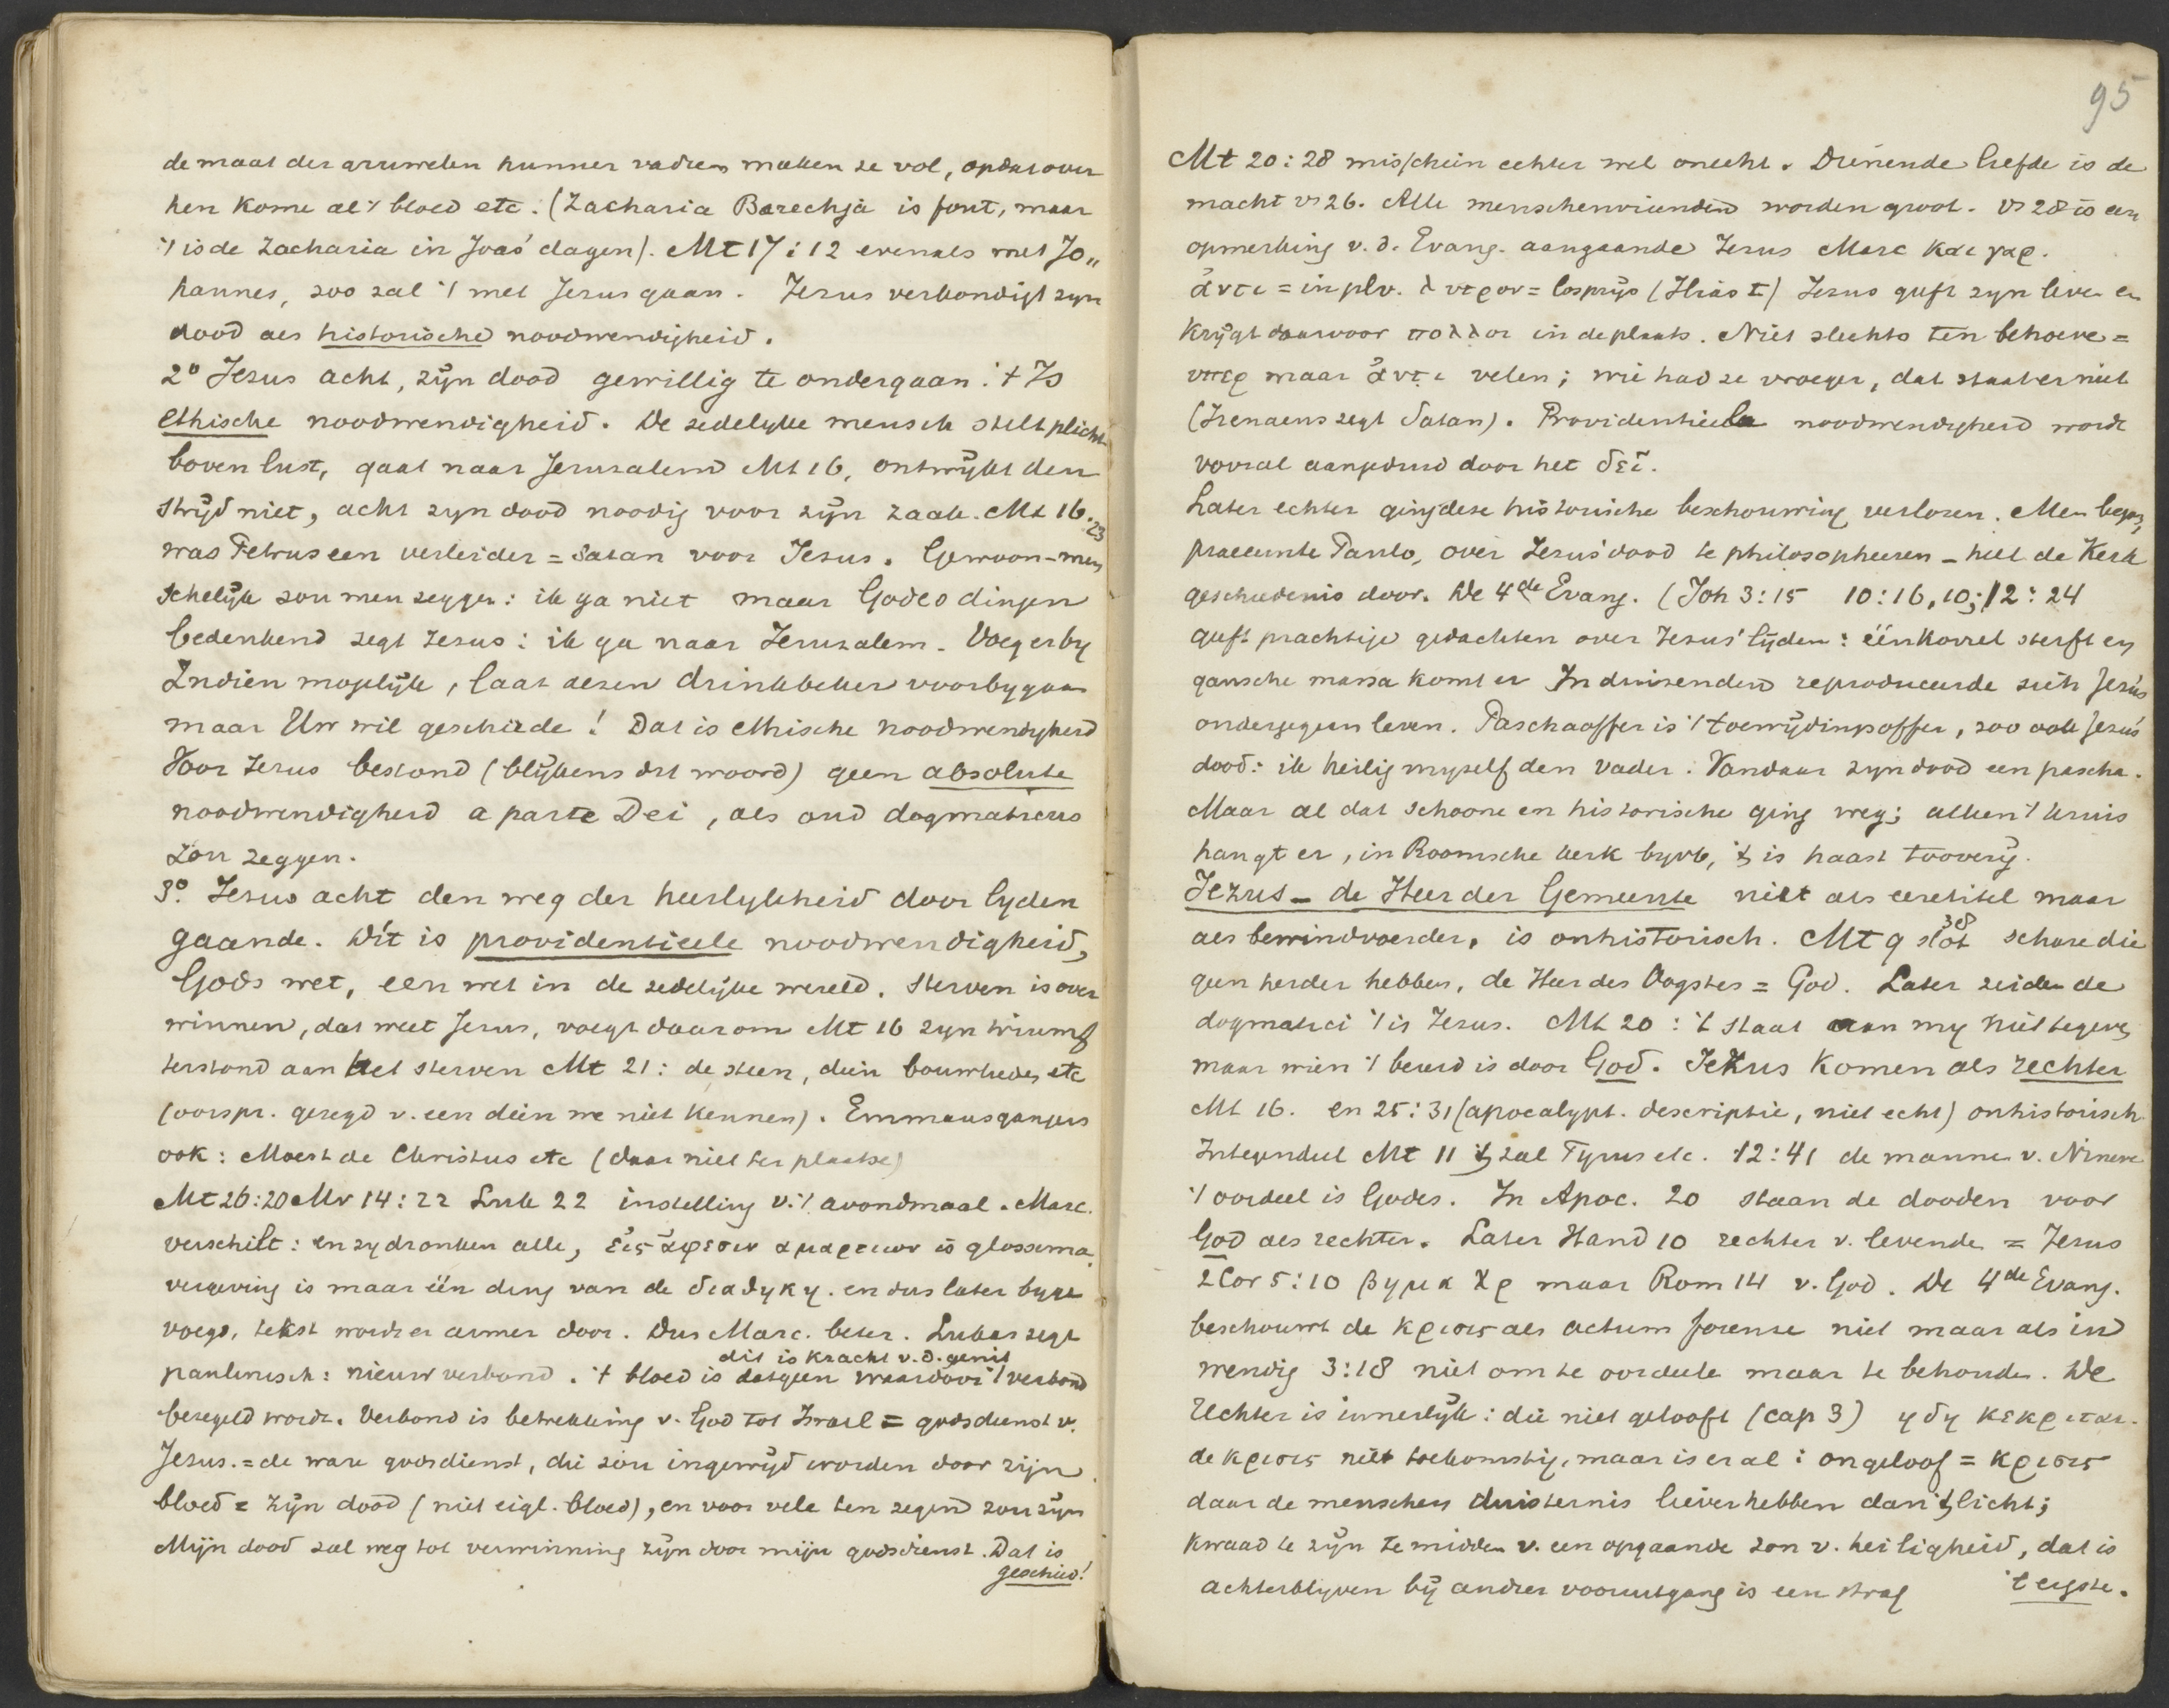 de maat der gruwelen hunner vaderen maken ze vol, opdat over
hen kome al 't bloed etc. (Zacharia Barechja is fout, maar
't is de Zacharia in Joas' dagen). Mt 17:12 evenals met Jo„
hannes, zoo zal 't met Jezus gaan. Jezus verkondigt zyn
dood als historische noodwendigheid.
2° Jezus acht, zijn dood gewillig te ondergaan: 't Is
ethische noodwendigheid. De zedelyke mensch stelt plicht
boven lust, gaat naar Jeruzalem Mt 16, ontwijkt den
strijd niet, acht zyn dood noodig voor zijn zaak. Mt 16:23
was Petrus een verleider = Satan voor Jezus. Gewoon-men
schelijk zou men zeggen: ik ga niet maar Godes dingen
bedenkend zegt Jezus: ik ga naar Jeruzalem. Voeg erby
Indien mogelijk, laat dezen drinkbeker voorbygaan
maar Uw wil geschiede! Dat is ethische noodwendigheid
Voor Jezus bestond (blijkens dit woord) geen absolute
noodwendigheid a parte Dei, als oud dogmaticus
zou zeggen.
3°. Jezus acht den weg der heerlykheid door lyden
gaande. Dít is providentieele noodwendigheid,
Gods wet, een wet in de zedelijke wereld. Sterven is over
winnen, dat weet Jezus, voegt daarom Mt 16 zyn triumf
terstond aan het sterven Mt 21: de steen, dien bouwlieden etc
(oorspr. gezegd v. een dien we niet kennen). Emmausgangers
ook: Moest de Christus etc (daar niet ter plaatse)
Mt 26:20 Mr 14:22 Luk 22 instelling v. 't avondmaal. Marc.
verschilt: en zy dronken alle, εἰς ἄφεσιν αμαρτιων is glossema,
vergeving is maar één ding van de διαθηκη. en dus later byge
voegd, tekst wordt er armer door. Dus Marc. beter. Lukas zegt
dit is kracht v. d. genit
paulinisch: nieuw verbond. 't bloed is datgeen waardoor 't verbond
bezegeld wordt. Verbond is betrekking v. God tot Israel = godsdienst v.
Jezus. = de ware godsdienst, die zou ingewijd worden door zijn
bloed = zijn dood (niet eigl. bloed), en voor vele ten zegen zou zijn
Mijn dood zal weg tot verwinning zijn door mijn godsdienst. Dat is
geschied!
95
Mt 20:28 misschien echter wel onecht. Dienende liefde is de
macht vs 26. Alle menschenvrienden worden groot. vs 28 is een
opmerking v. d. Evang. aangaande Jezus Marc και γαρ.
ἀντι = in plv. λυτρον = losprijs (Ilias I) Jezus geeft zyn leven en
krijgt daarvoor πολλοι in de plaats. Niet slechts ten behoeve =
υπερ maar ἀντι velen; wie had ze vroeger, dat staat er niet
(Irenaeus zegt Satan). Providentieele noodwendigheid wordt
vooral aangeduid door het δεῖ.
Later echter ging deze historische beschouwing verloren. Men begon,
praeeunte Paulo, over Jezus' dood te philosopheeren - heel de Kerk
geschiedenis door. De 4de Evang. (Joh 3:15 10:16, 10; 12:24
geeft prachtige gedachten over Jezus' lijden: één korrel sterft en
gansche massa komt er In duizenden reproduceerde zich Jezus
ondergegaan leven. Paschaoffer is 't toewijdingsoffer, zoo ook Jezus'
dood: ik heilig myself den Vader. Vandaar zyn dood een pascha.
Maar al dat schoone en historische ging weg; alleen 't kruis
hangt er, in Roomsche kerk byvb, 't is haast toovery.
Jezus - de Heer der Gemeente niet als eeretitel maar
als bewindvoerder, is onhistorisch. Mt 9 slot 38 schare die
geen herder hebben, de Heer des Oogstes = God. Later zeiden de
dogmatici 't is Jezus. Mt 20: 't staat aan my niet te geven,
maar wien 't bereid is door God. Jezus komen als rechter
Mt 16. en 25:31 (apocalypt. descriptie, niet echt) onhistorisch
Integendeel Mt 11 't zal Tyrus etc. 12:41 de mannen v. Nineve
't oordeel is Godes. In Apoc. 20 staan de dooden voor
God als rechter. Later Hand 10 rechter v. levende = Jezus
2 Cor 5:10 βημα Χρ maar Rom 14 v. God. De 4de Evang.
beschouwt de κρισις als actum forense niet maar als in
wendig 3:18 niet om te oordeele maar te behouden. De
Rechter is innerlijk: die niet gelooft (cap 3) ηδη κεκριται.
de κρισις niet toekomstig, maar is er al: ongeloof = κρισις
daar de menschen duisternis liever hebben dan 't licht;
kwaad te zijn te midden v. een opgaande zon v. heiligheid, dat is
achterblyven bij andrer vooruitgang is een straf 't ergste.